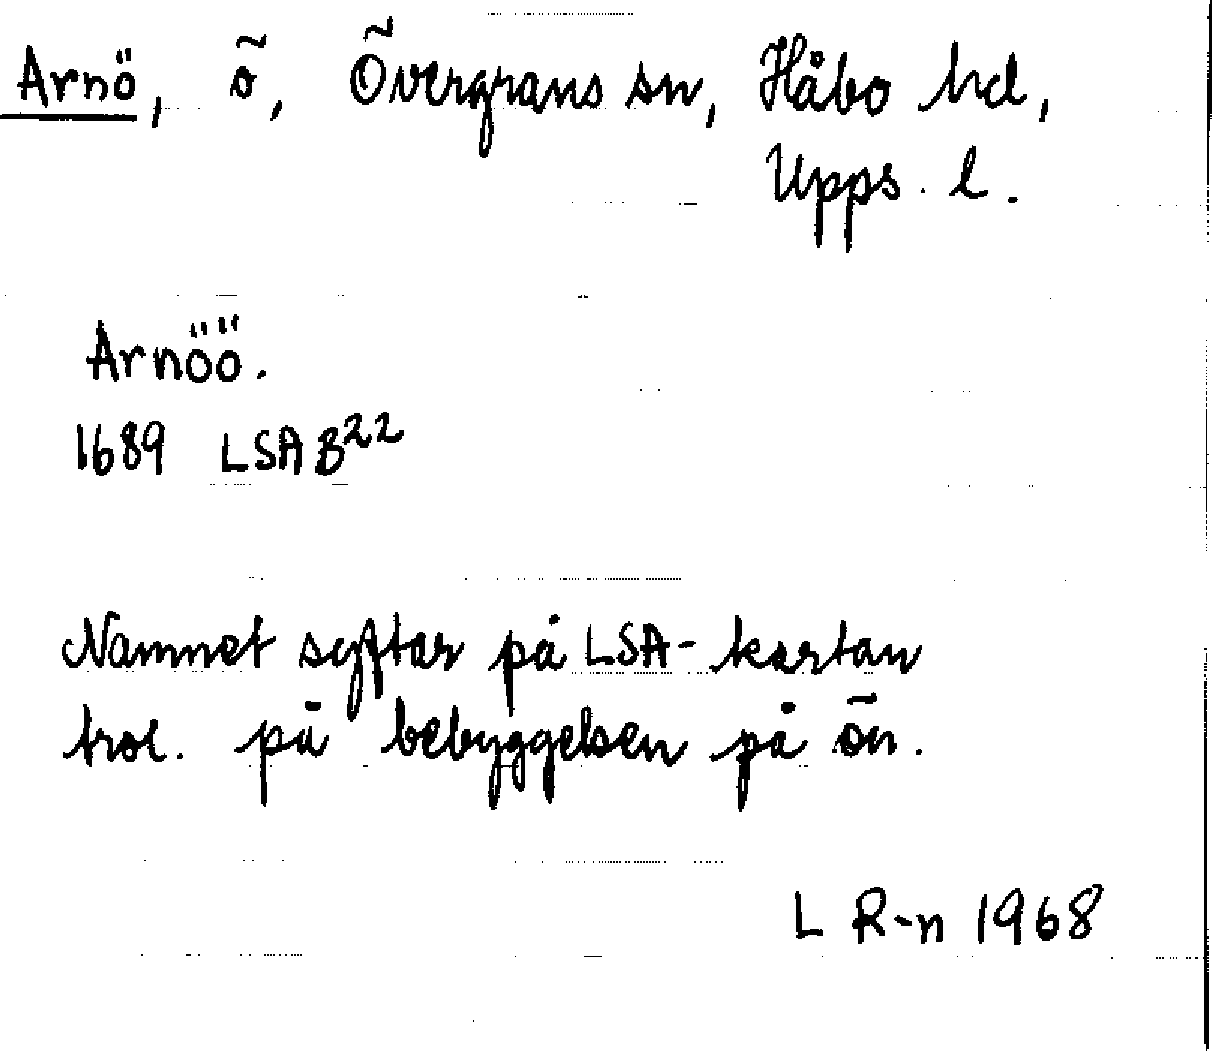 Arnö, ö, Övergrans sn, Håbo hd,
Upps. l.
Arnöö.
1689 LSA B²²
Namnet syftar på LSA-kartan
trol. på bebyggelsen på ön.
L R-n 1968